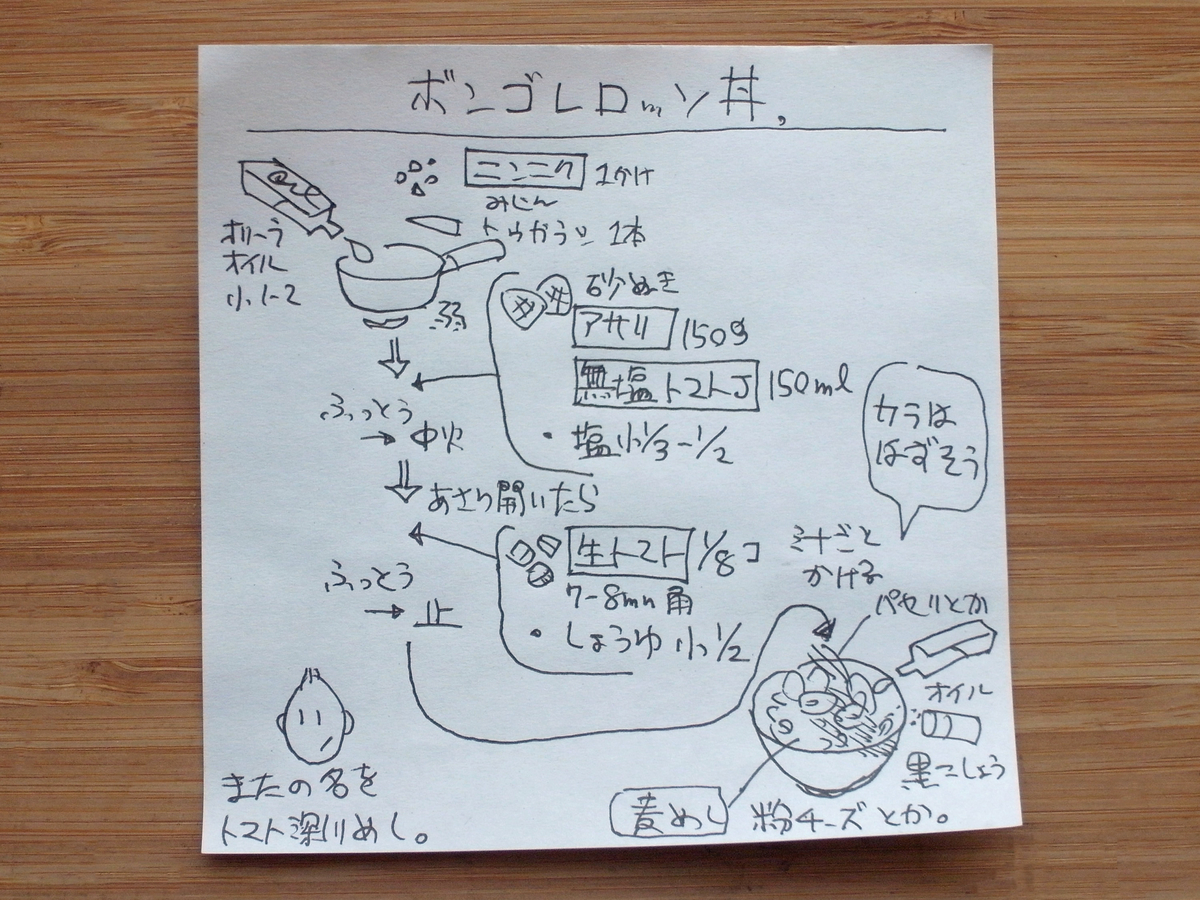 ボンゴレロッソ丼。
ニンニク 1かけ
みじん
トウガラシ 1本
オリーブ
オイル
小1-2
弱
砂ぬき
アサリ 150g
無塩トマトJ 150ml
・塩小1/3-1/2
ふっとう
→ 中火
あさり開いたら
生トマト 1/8コ
7-8mm角
・しょうゆ 小1/2
ふっとう
→ 止
カラは
はずそう
汁ごと
かける
パセリとか
オイル
黒こしょう
麦めし
粉チーズとか。
またの名を
トマト深川めし。